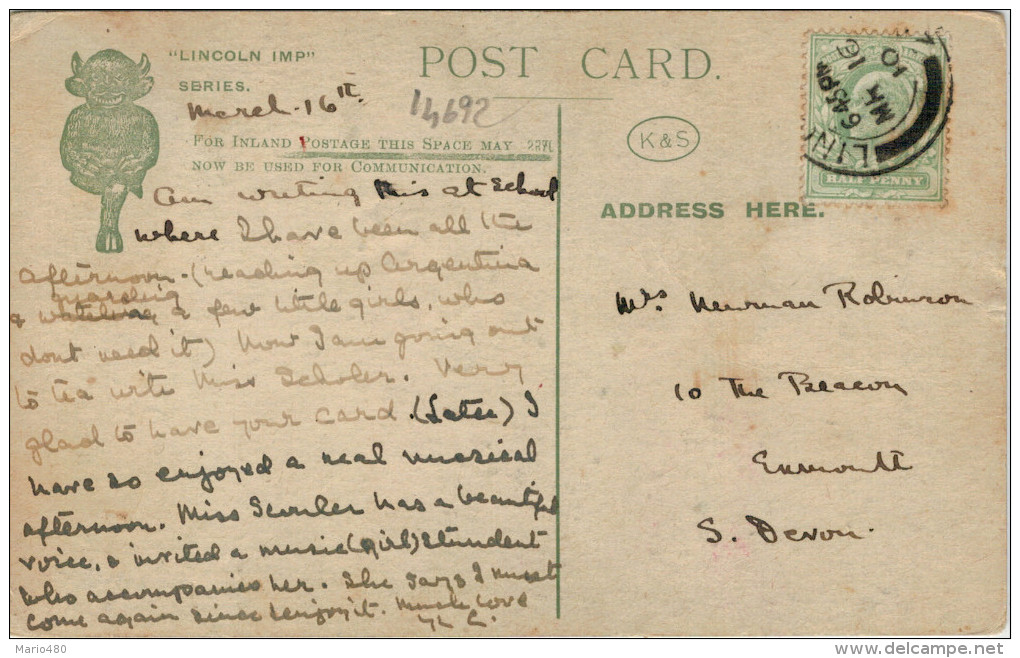 "LINCOLN IMP"
SERIES.
POST CARD.
March. 16th
14692
FOR INLAND POSTAGE THIS SPACE MAY
NOW BE USED FOR COMMUNICATION.
K & S
6 45 PM
16 MR
10
HALF PENNY
ADDRESS HERE.
Am writing this at School
where I have been all the
afternoon. (reading up Argentina
guarding
& watching a few little girls, who
dont need it) Now I am going out
to tea with Miss Scholer. Very
glad to have your card. (Later) I
have so enjoyed a real musical
afternoon. Miss has a beautiful
voice, & invited a music (girl) student
who accompanies her. She says I must
come again since I enjoy it. Much love
Mrs Newman Robinson
10 The Beacon
Exmouth
S. Devon.
Mario480
delcampe.net